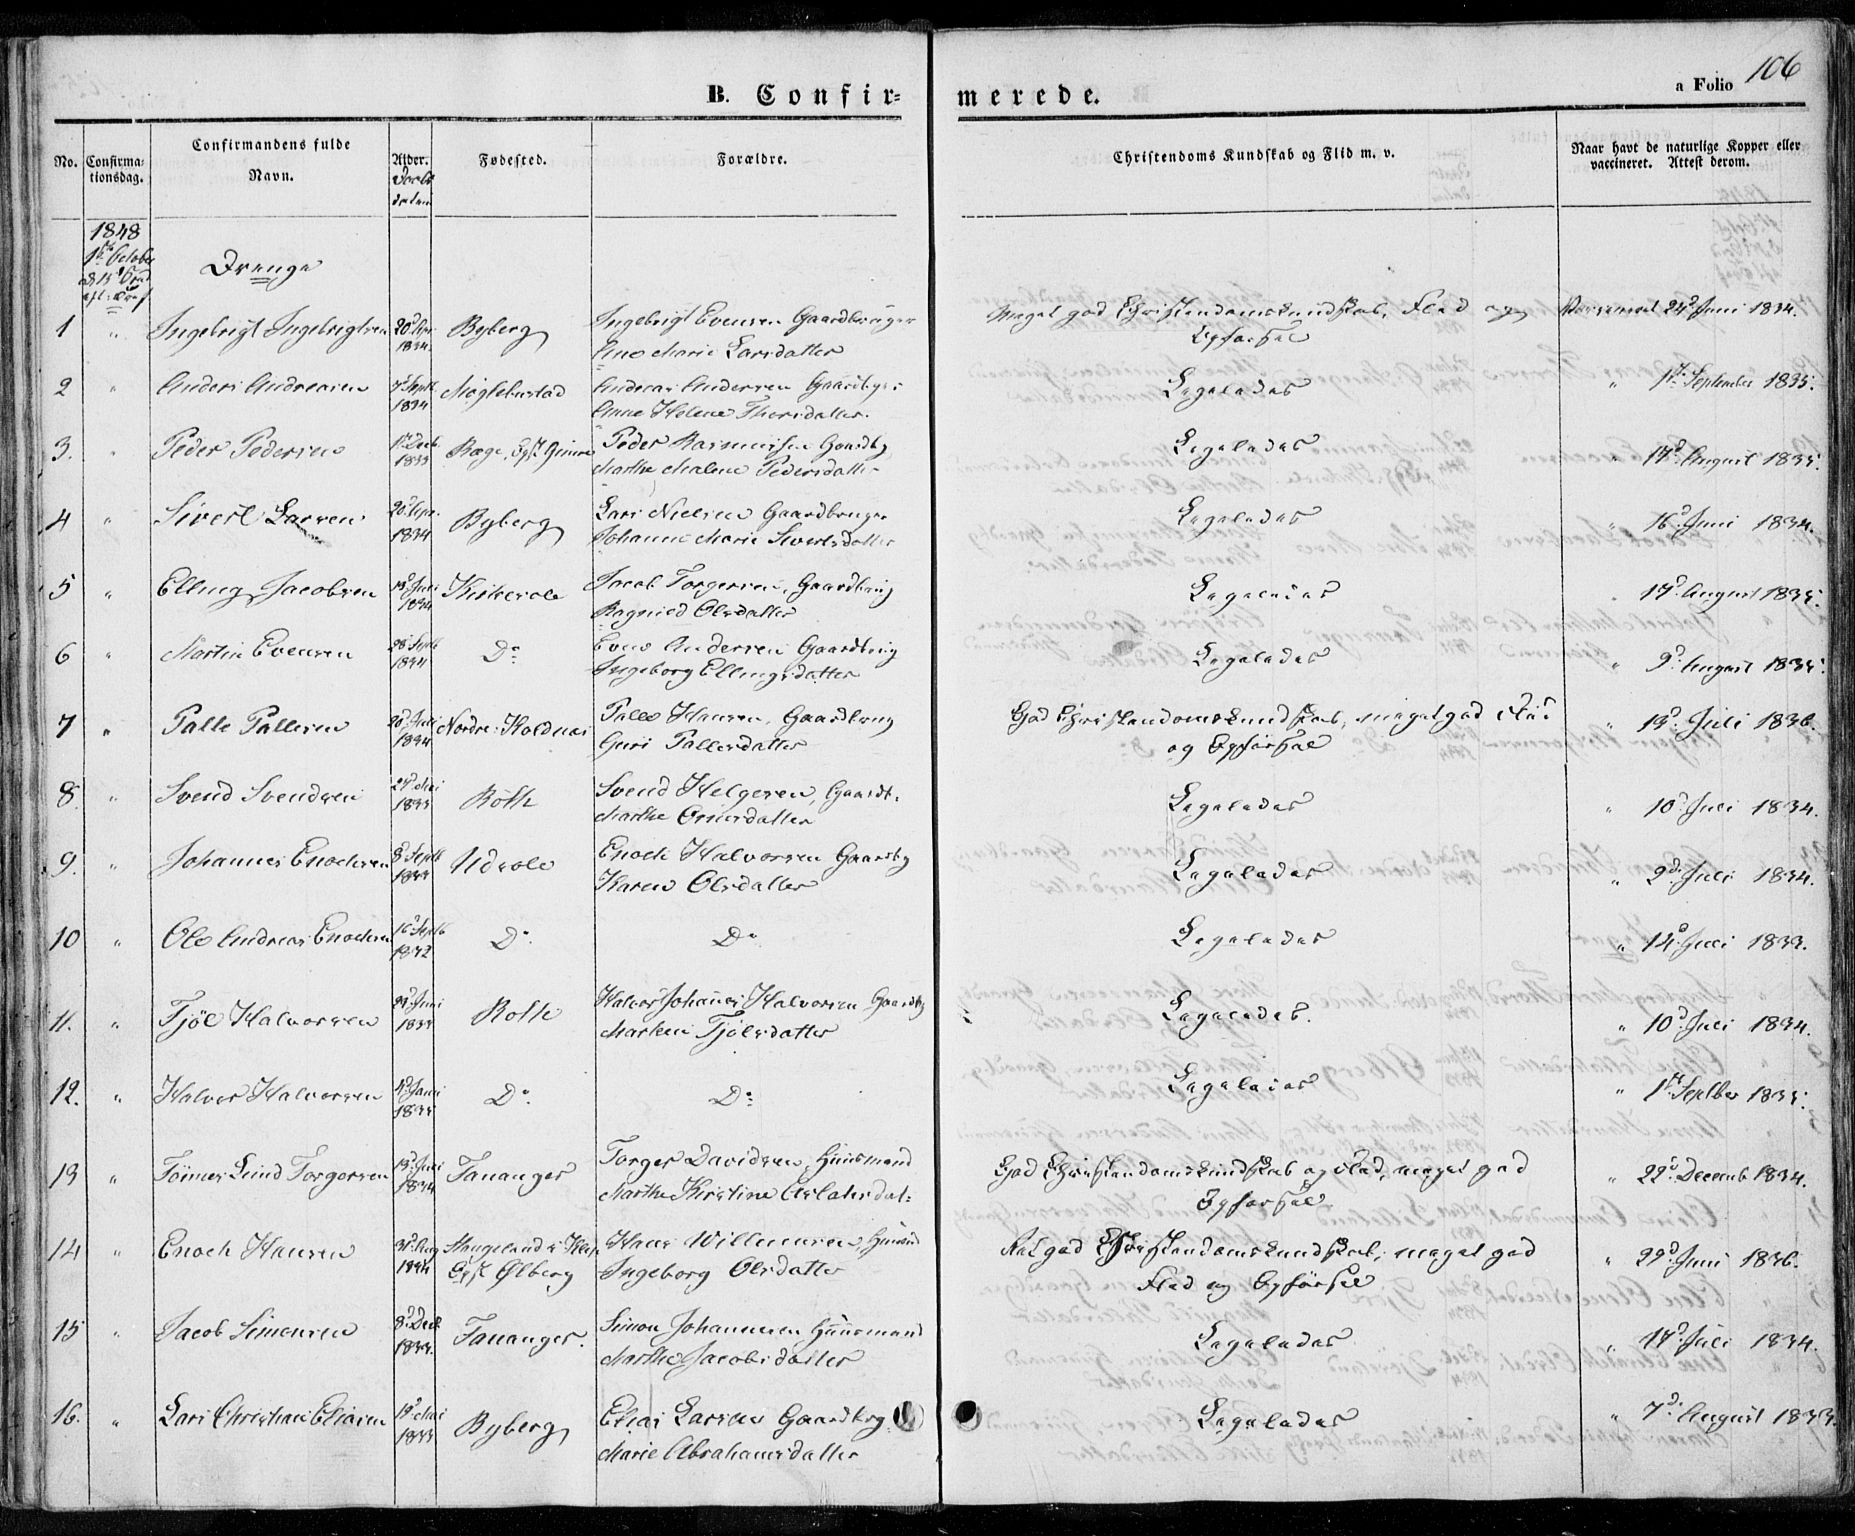 106
B. Confir=
merede.
a Folio
No.
Confirma=
tionsdag.
Confirmandens fulde
Navn.
Alder.
Fødested.
Forældre.
Christendoms Kundskab og Flid m. v.
Naar havt de naturlige Kopper eller
vaccineret. Attest derom.
1848
1ste October
Drenge
1 " Ingebrigt Ingebrigtsen 1834. Byberg Ingebrigt Evensen Gaardbruger
Ane Marie Larsdatter
Meget god Christendomskundskab, Flid og
Opførsel
Vaccineret 24d Juni 1834.
2 " Anders Andreasen 7d Septb. 1834 Møglebustad Andreas Andersen Gaardbgr:
Anne Helene Thorsdatter.
Ligeledes
" 1ste September 1835.
3. " Peder Pedersen 1833 Ræge, Peder Rasmussen Gaardbg
Marthe Malene Pedersdatter
Ligeledes
" 17d August 1835.
4 " Sivert Larsen 1834 Byberg Lars Nielsen Gaardbruger
Johanne Marie Sivertsdatter
Ligeledes
" 16d Juni 1834.
5 " Elling Jacobsen 1834 Kirkesole Jacob Torgersen, Gaardbrug
Ragnild Olsdatter
Ligeledes
" 17d August 1835.
6 " Martin Evensen 28d Septb 1834 Do Even Andersen Gaardbrug
Ingeborg Ellingsdatter
Ligeledes
" 9d August 1835.
7 " Palle Pallesen 1834 Nordre Koldnæs Palle Hansen, Gaardbrug
Guri Pallesdatter
God Christendomskundskab, meget god Flid
og Opførsel
" 13d Juli 1836.
8. " Svend Svendsen Mai 1833 Rott Svend Helgesen, Gaardb.
Marthe Omundsdatter
Ligeledes
" 10d Juli 1834.
9. " Johannes Enochsen 8d Septb 1833 Udsole Enoch Halvorsen Gaardbg
Karen Olsdatter
Ligeledes
" 2d Juli 1834.
10 " Ole Andreas Enochsen 16d Septb 1832 Do. Do
Ligeledes
" 14d Juli 1833.
11. " Tjøl Halvorsen 1833 Rott Halvor Johannes Halvorsen Gaardbg
Marthen Tjølsdatter
Ligeledes.
" 10d Juli 1834.
12. " Halvor Halvorsen 1833 Do. Do
Ligeledes
" 1ste Septber 1835.
13 " Tønnes Lund Torgersen 1834 Tananger Torger Davidsen, Huusmand
Marthe Kirstine Aslaksdat:
God Christendomskundskab og Flid, meget god
Opførsel
" 22d Decemb 1834.
14 " Enoch Hansen 31d Aug 1834 Stangeland i Klep
Opf. Ølberg
Hans Willumsen, Huusmd
Ingeborg Olsdatter
Ret god Christendomskundskab, meget god
Flid og Opførsel
" 29d Juni 1836.
15 " Jacob Simonsen 8d Decb 1833. Tananger. Simon Johannesen Huusmand
Marthe Jacobsdatter
Ligeledes
" 17d Juli 1834.
16. " Lars Christian Eliasen Mai 1833 Byberg Elias Larsen Gaardbrg
Marie Abrahamsdatter
Ligeledes
" 7d August 1833.